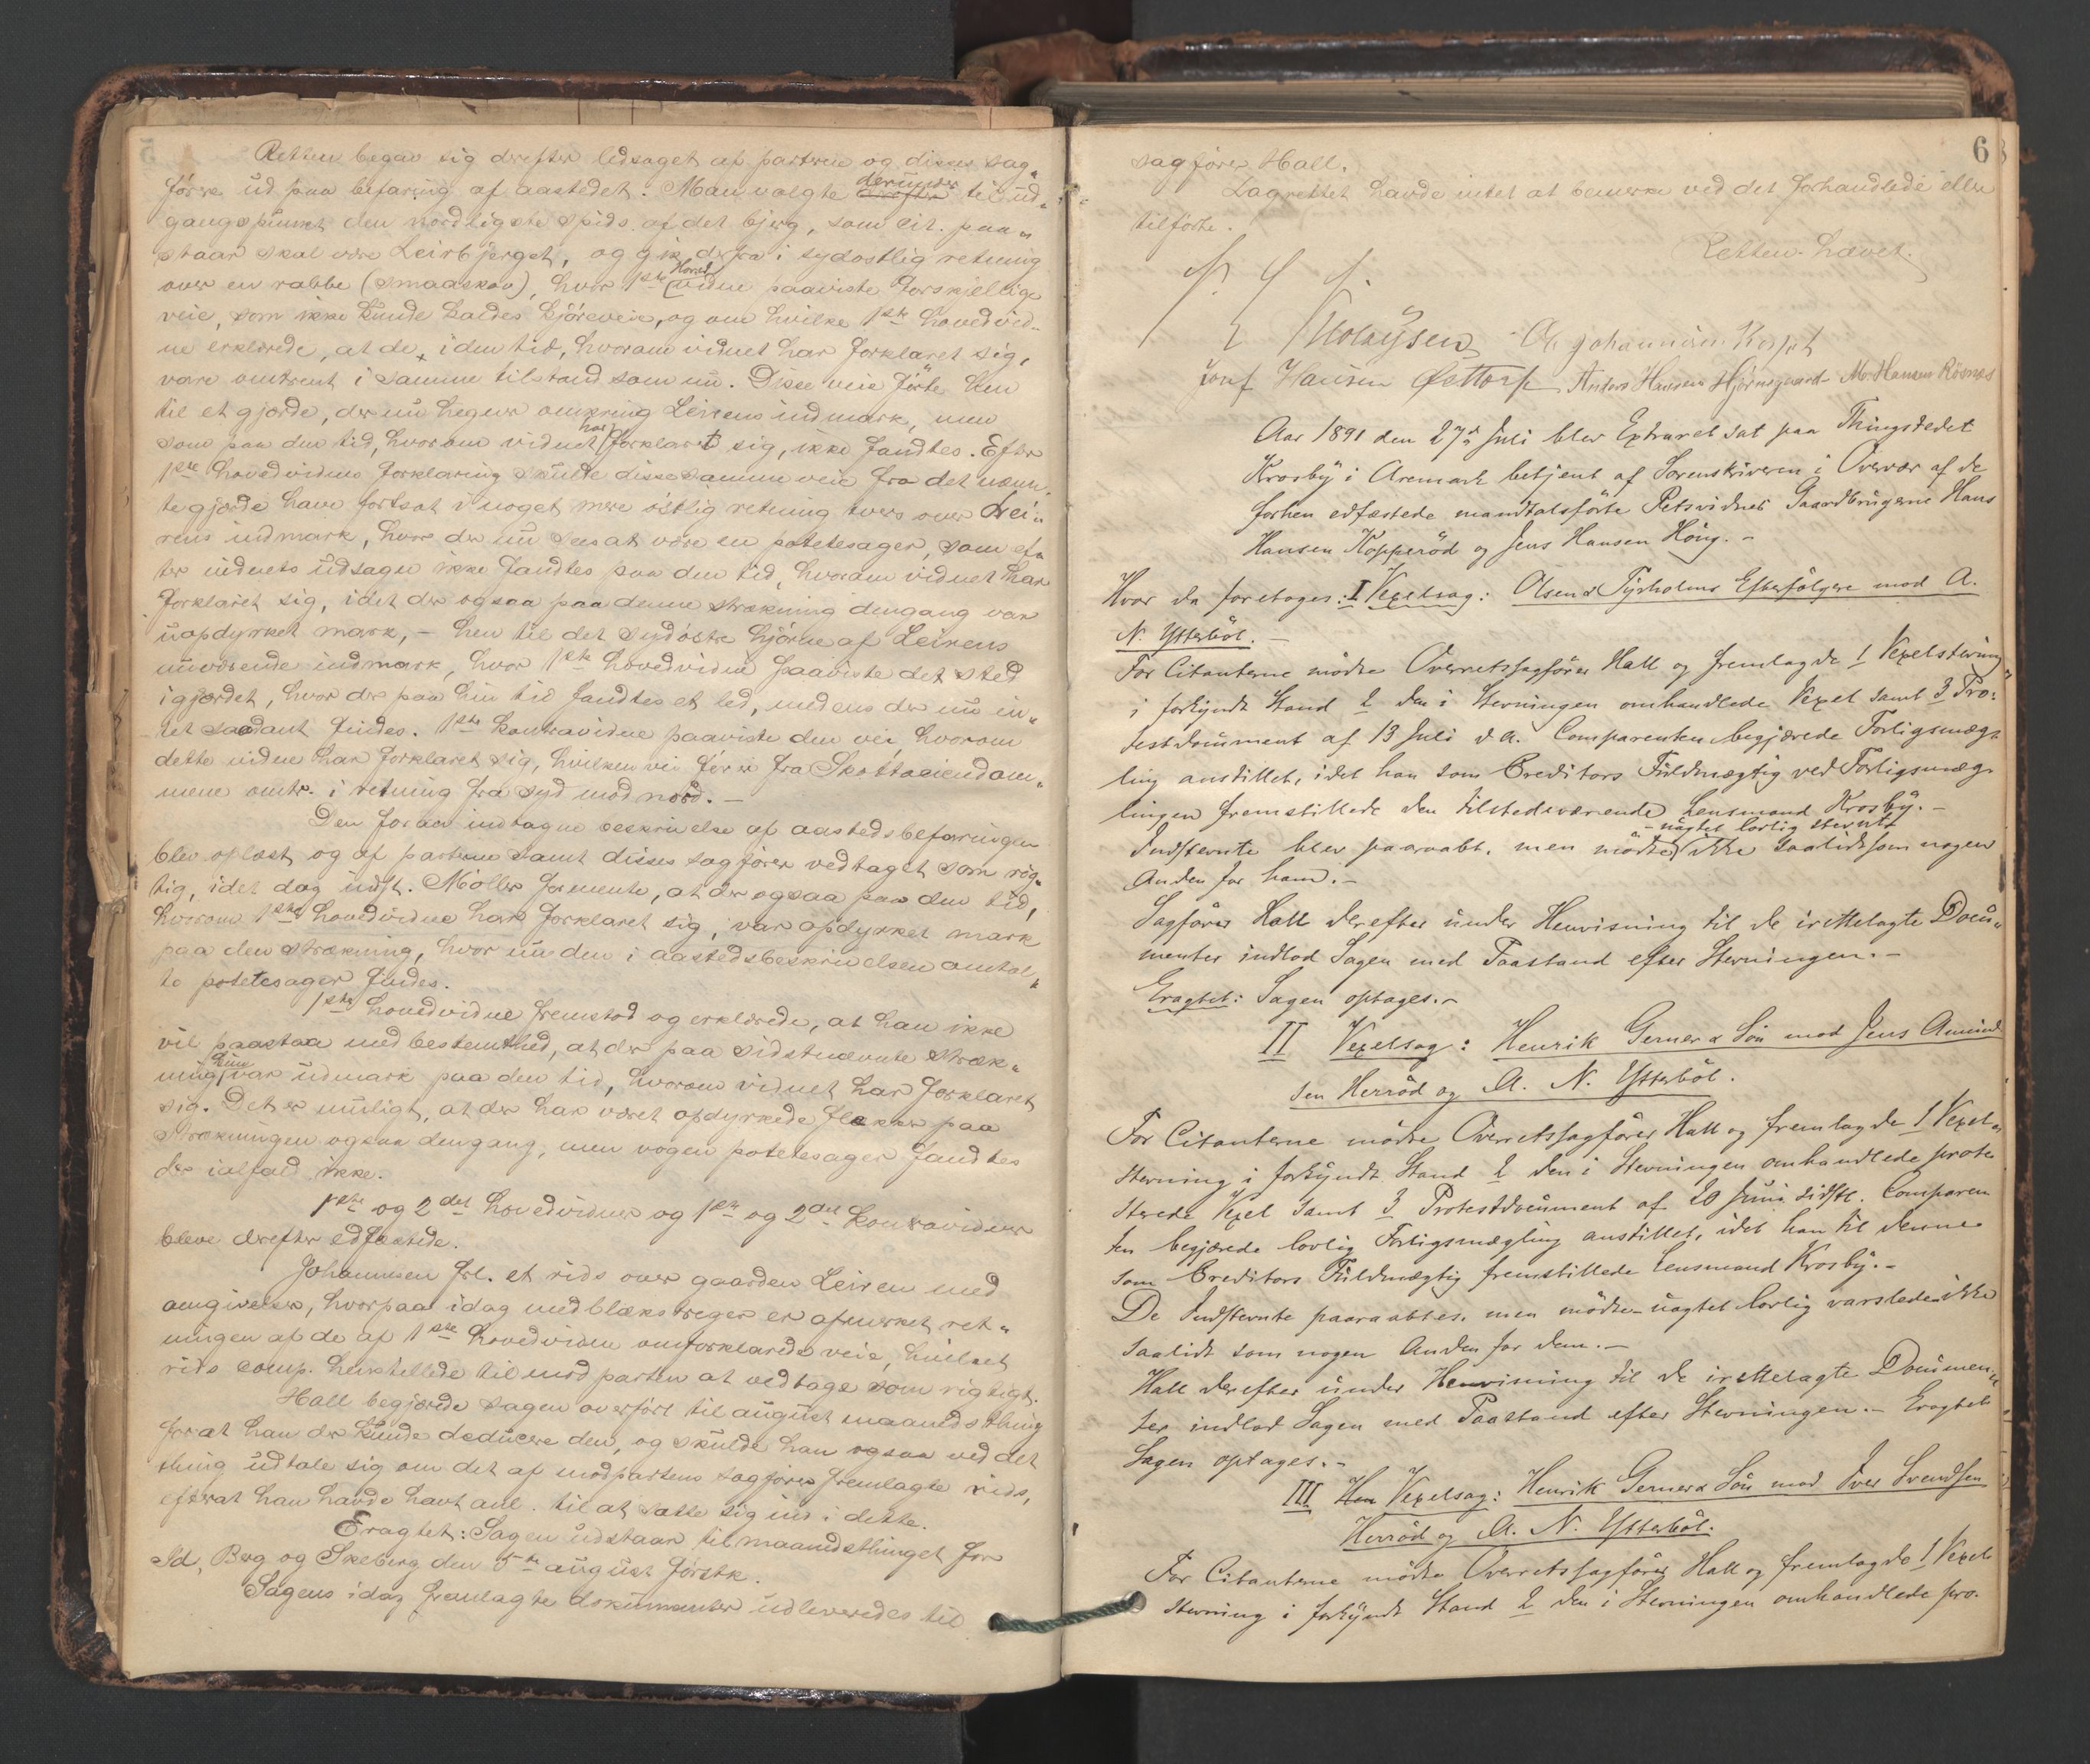 Retten begav sig derefter ledsaget af parterne og disses sag„
förere ud paa befaring af aastedet. Man valgte derunder til ud„
gangspunkt den nordligste spids af det bjerg, som cit. paa„
staar skal være Leirbjerget, og gik derfra i sydostlig retning
over en rabbe (smaaskov), hvor 1ste Hovedvidne paaviste forskjellige
veie, som ikke kunde kaldes kjöreveie, og om hvilke 1ste hovedvid„
ne erklærede, at de, i den tid, hvorom vidnet har forklaret sig,
vare omtrent i samme tilstand som nu. Disse veie förte hen
til et gjerde, der nu hegner omkring Leirens indmark, men
som paa den tid, hvorom vidnet har forklaret sig, ikke fandtes. Efter
1ste hovedvidnes forklaring skulde disse samme veie fra det nævn„
te gjerde have fortsat i noget mere östlig retning tvers over Lei„
rens indmark, hvor der nu sees at være en potetesager, som ef„
ter vidnets udsagn ikke fandtes paa den tid, hvorom vidnet har
forklaret sig, idet der ogsaa paa denne strækning dengang var
uopdyrket mark, – hen til det sydöstre hjörne af Leirens
nuværende indmark, hvor 1ste hovedvidne paaviste det sted
i gjerdet, hvor der paa hin tid fandtes et led, medens der nu in„
tet saadant findes. 1ste kontravidne paaviste den vei, hvorom
dette vidne har forklaret sig, hvilken vei förer fra Skottaeiendom„
mene omtr. i retning fra syd mod nord. –
Den foran indtagne beskrivelse af aastedsbefaringen
blev oplæst og af parterne samt disses sagförer vedtaget som rig„
tig, idet dog indst. Möller formente, at der ogsaa paa den tid,
hvorom 1ste hovedvidne har forklaret sig, var opdyrket mark
paa den strækning, hvor nu den i aastedsbeskrivelsen omtal„
te potetesager findes.
1ste hovedvidne fremstod og erklærede, at han ikke
vil paastaa med bestemthed, at der paa sidstnævnte stræk„
ning kun var udmark paa den tid, hvorom vidnet har forklaret
sig. Det er muligt, at der har været opdyrkede flekker paa
strækningen ogsaa dengang, men nogen potetesager fandtes
der ialfald ikke.
1ste og 2det hovedvidne og 1ste og 2det kontravidner
bleve derefter edfæstede.
Johannesen frl. et rids over gaarden Leiren med
omgivelser, hvorpaa idag med blækstreger er afmerket ret„
ningen af de af 1ste hovedvidne omforklarede veie, hvilket
rids comp. henstillede til modparten at vedtage som rigtigt.
Hall begjærede sagen overfört til august maanedsthing
forat han der kunde deducere den, og skulde han ogsaa ved det
thing udtale sig om det af modpartens sagförer fremlagte rids,
efterat han havde havt anl. til at sætte sig ind i dette.
Eragtet: Sagen udstaar til maanedsthinget for
Id, Berg og Skeberg den 5te august förstk.
Sagens idag fremlagte dokumenter udleveredes til
6
sagförer Hall.
Lagrettet havde intet at bemerke ved det forhandlede eller
tilförte.
Retten hævet.
Josef Hansen Anders Hansen Hjörnsgaard M. Hansen Rösnæs
Aar 1891 den 27de Juli blev Extraret sat paa Thingstedet
Krosby i Aremark betjent af Sorenskriveren i Overvær af de
forhen edfæstede mandtalsförte Retsvidner Gaardbrugerne Hans
Hansen Kopperöd og Jens Hansen Höng. –
Hvor da foretoges: I Vexelsag: Olsen & Tyrholms Efterfölgere mod A.
N. Ytterböl. –
For Citanterne mödte Overretssagförer Hall og fremlagde 1 Vexelstevning
i forkyndt Stand 2 den i Stevningen omhandlede Vexel samt 3 Pro:
testdocument af 13 Juli d. A. Comparenten begjærede Forligsmæg„
ling anstillet, idet han som Creditors Fuldmægtig ved Forligsmæg„
lingen fremstillede den tilstedeværende Lensmand Krosby. –
Indstevnte blev paaraabt, men mödte – uagtet lovlig stevnt – ikke saalidtsom nogen
Anden for ham. –
Sagförer Hall derefter under Henvisning til de irettelagte Docu„
menter indlod Sagen med Paastand efter Stevningen. –
Eragtet: Sagen optages. –
II Vexelsag: Henrik Gerner & Sön mod Jens Amund
sen Herröd og A. N. Ytterböl.
For Citanterne mödte Overretssagförer Hall og fremlagde 1 Vexel„
stevning i forkyndt Stand 2 den i Stevningen omhandlede prote
sterede Vexel samt 3 Protestdocument af 20 Juni sidstl. Comparen
ten begjærede lovlig Forligsmægling anstillet, idet han til denne
som Creditors Fuldmægtig fremstillede Lensmand Krosby. –
De Indstevnte paaraabtes, men mödte – uagtet lovlig varslede – ikke
saalidt som nogen Anden for dem. –
Hall derefter under Henvisning til de irettelagte Documen„
ter indlod Sagen med Paastand efter Stevningen. – Eragtet
Sagen optages. –
III Vexelsag: Henrik Gerner & Sön mod Iver Svendsen
Herröd og A. N. Ytterböl.
For Citanterne mödte Overretssagförer Hall og fremlagde 1 Vexel
stevning i forkyndt Stand 2 den i Stevningen omhandlede pro„